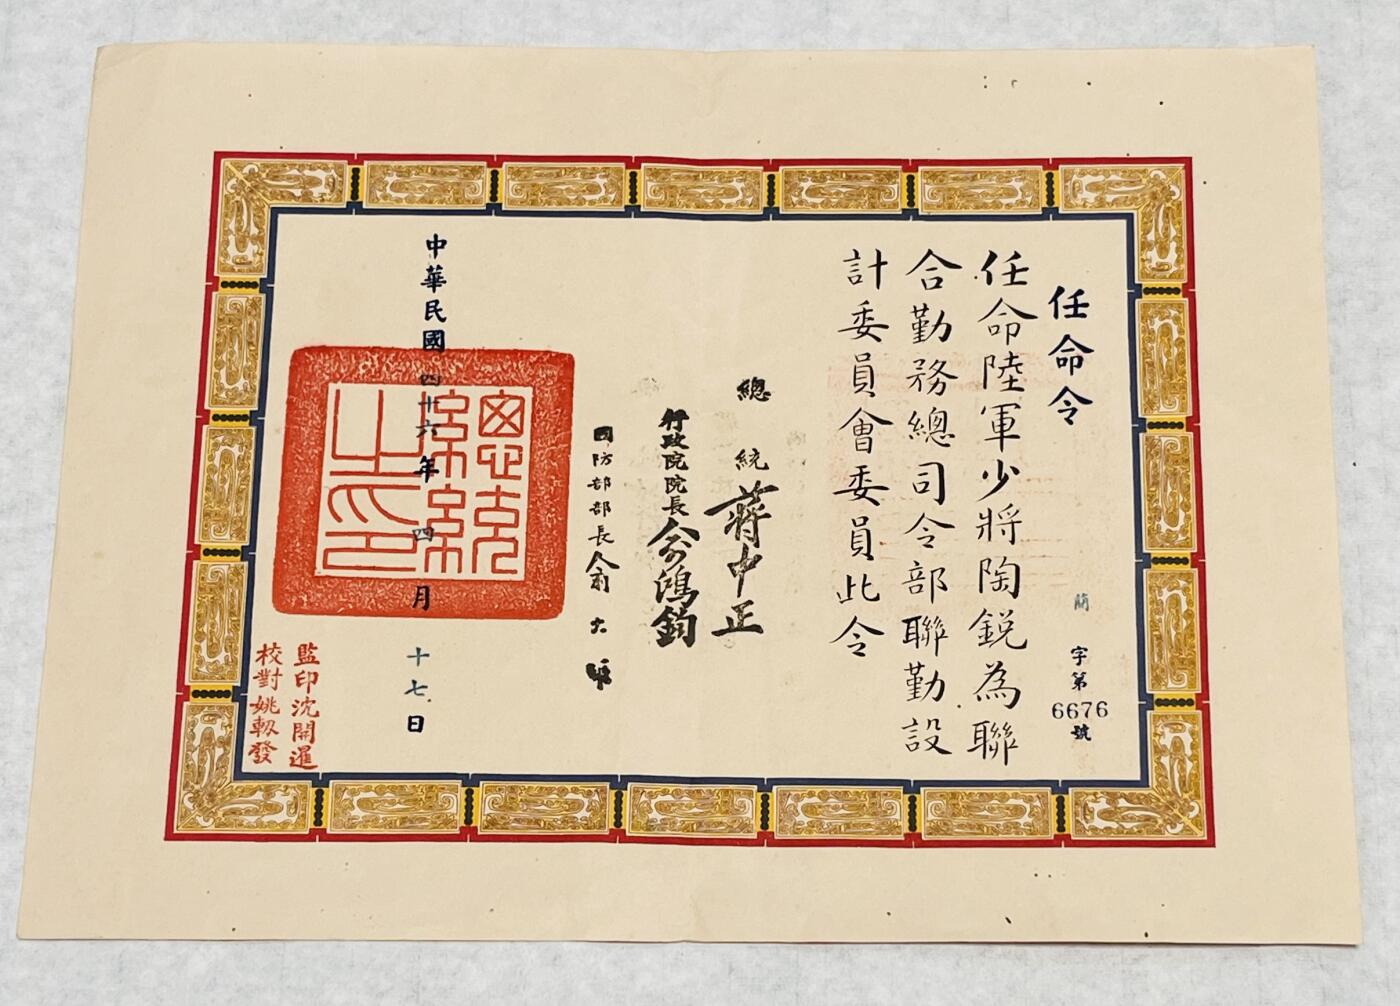 任命令
簡字第6676號
任命陸軍少將陶銳為聯
合勤務總司令部聯勤設
計委員會委員此令
總統蔣中正
行政院院長俞鴻鈞
國防部部長俞大維
中華民國四十六年四月十七日
總統之印
監印沈開暹
校對姚軔發